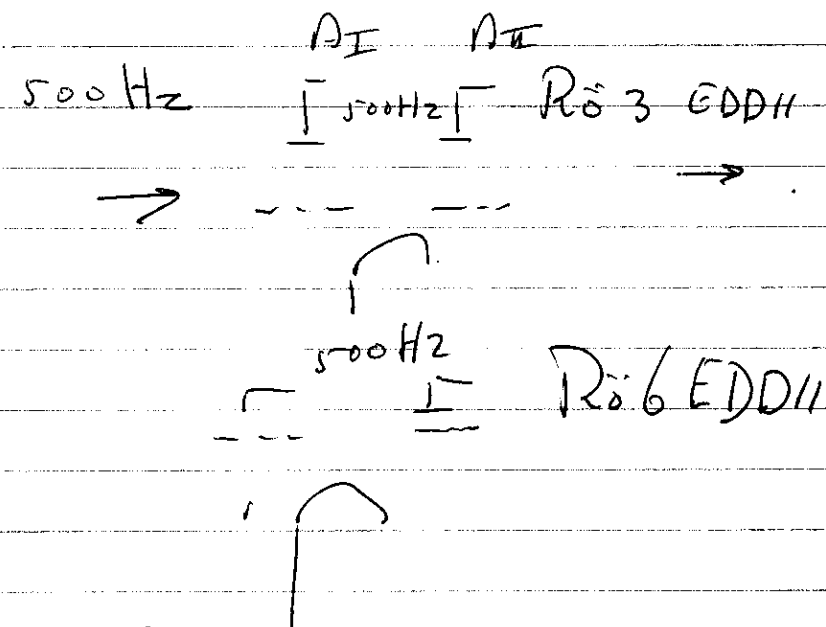 AI AII
500Hz 500Hz Rö 3 EDD11
500Hz
Rö6 EDD11